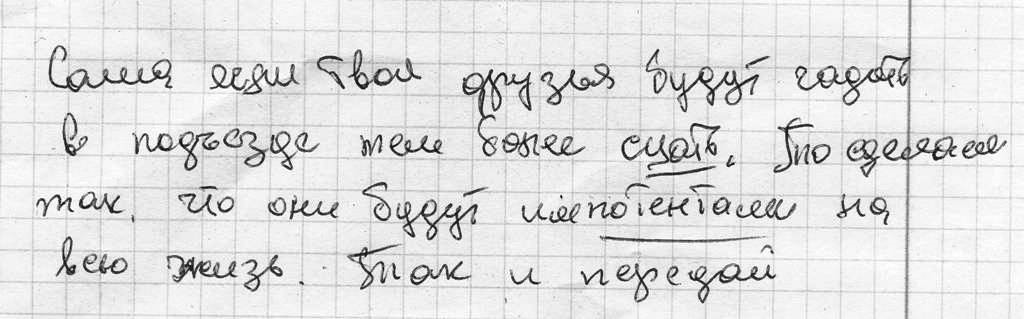 Саша если твои друзья будут гадать
в подъезде тем более сцать. то сделаем
так, что они будут импотентами на
всю жизь. Так и передай